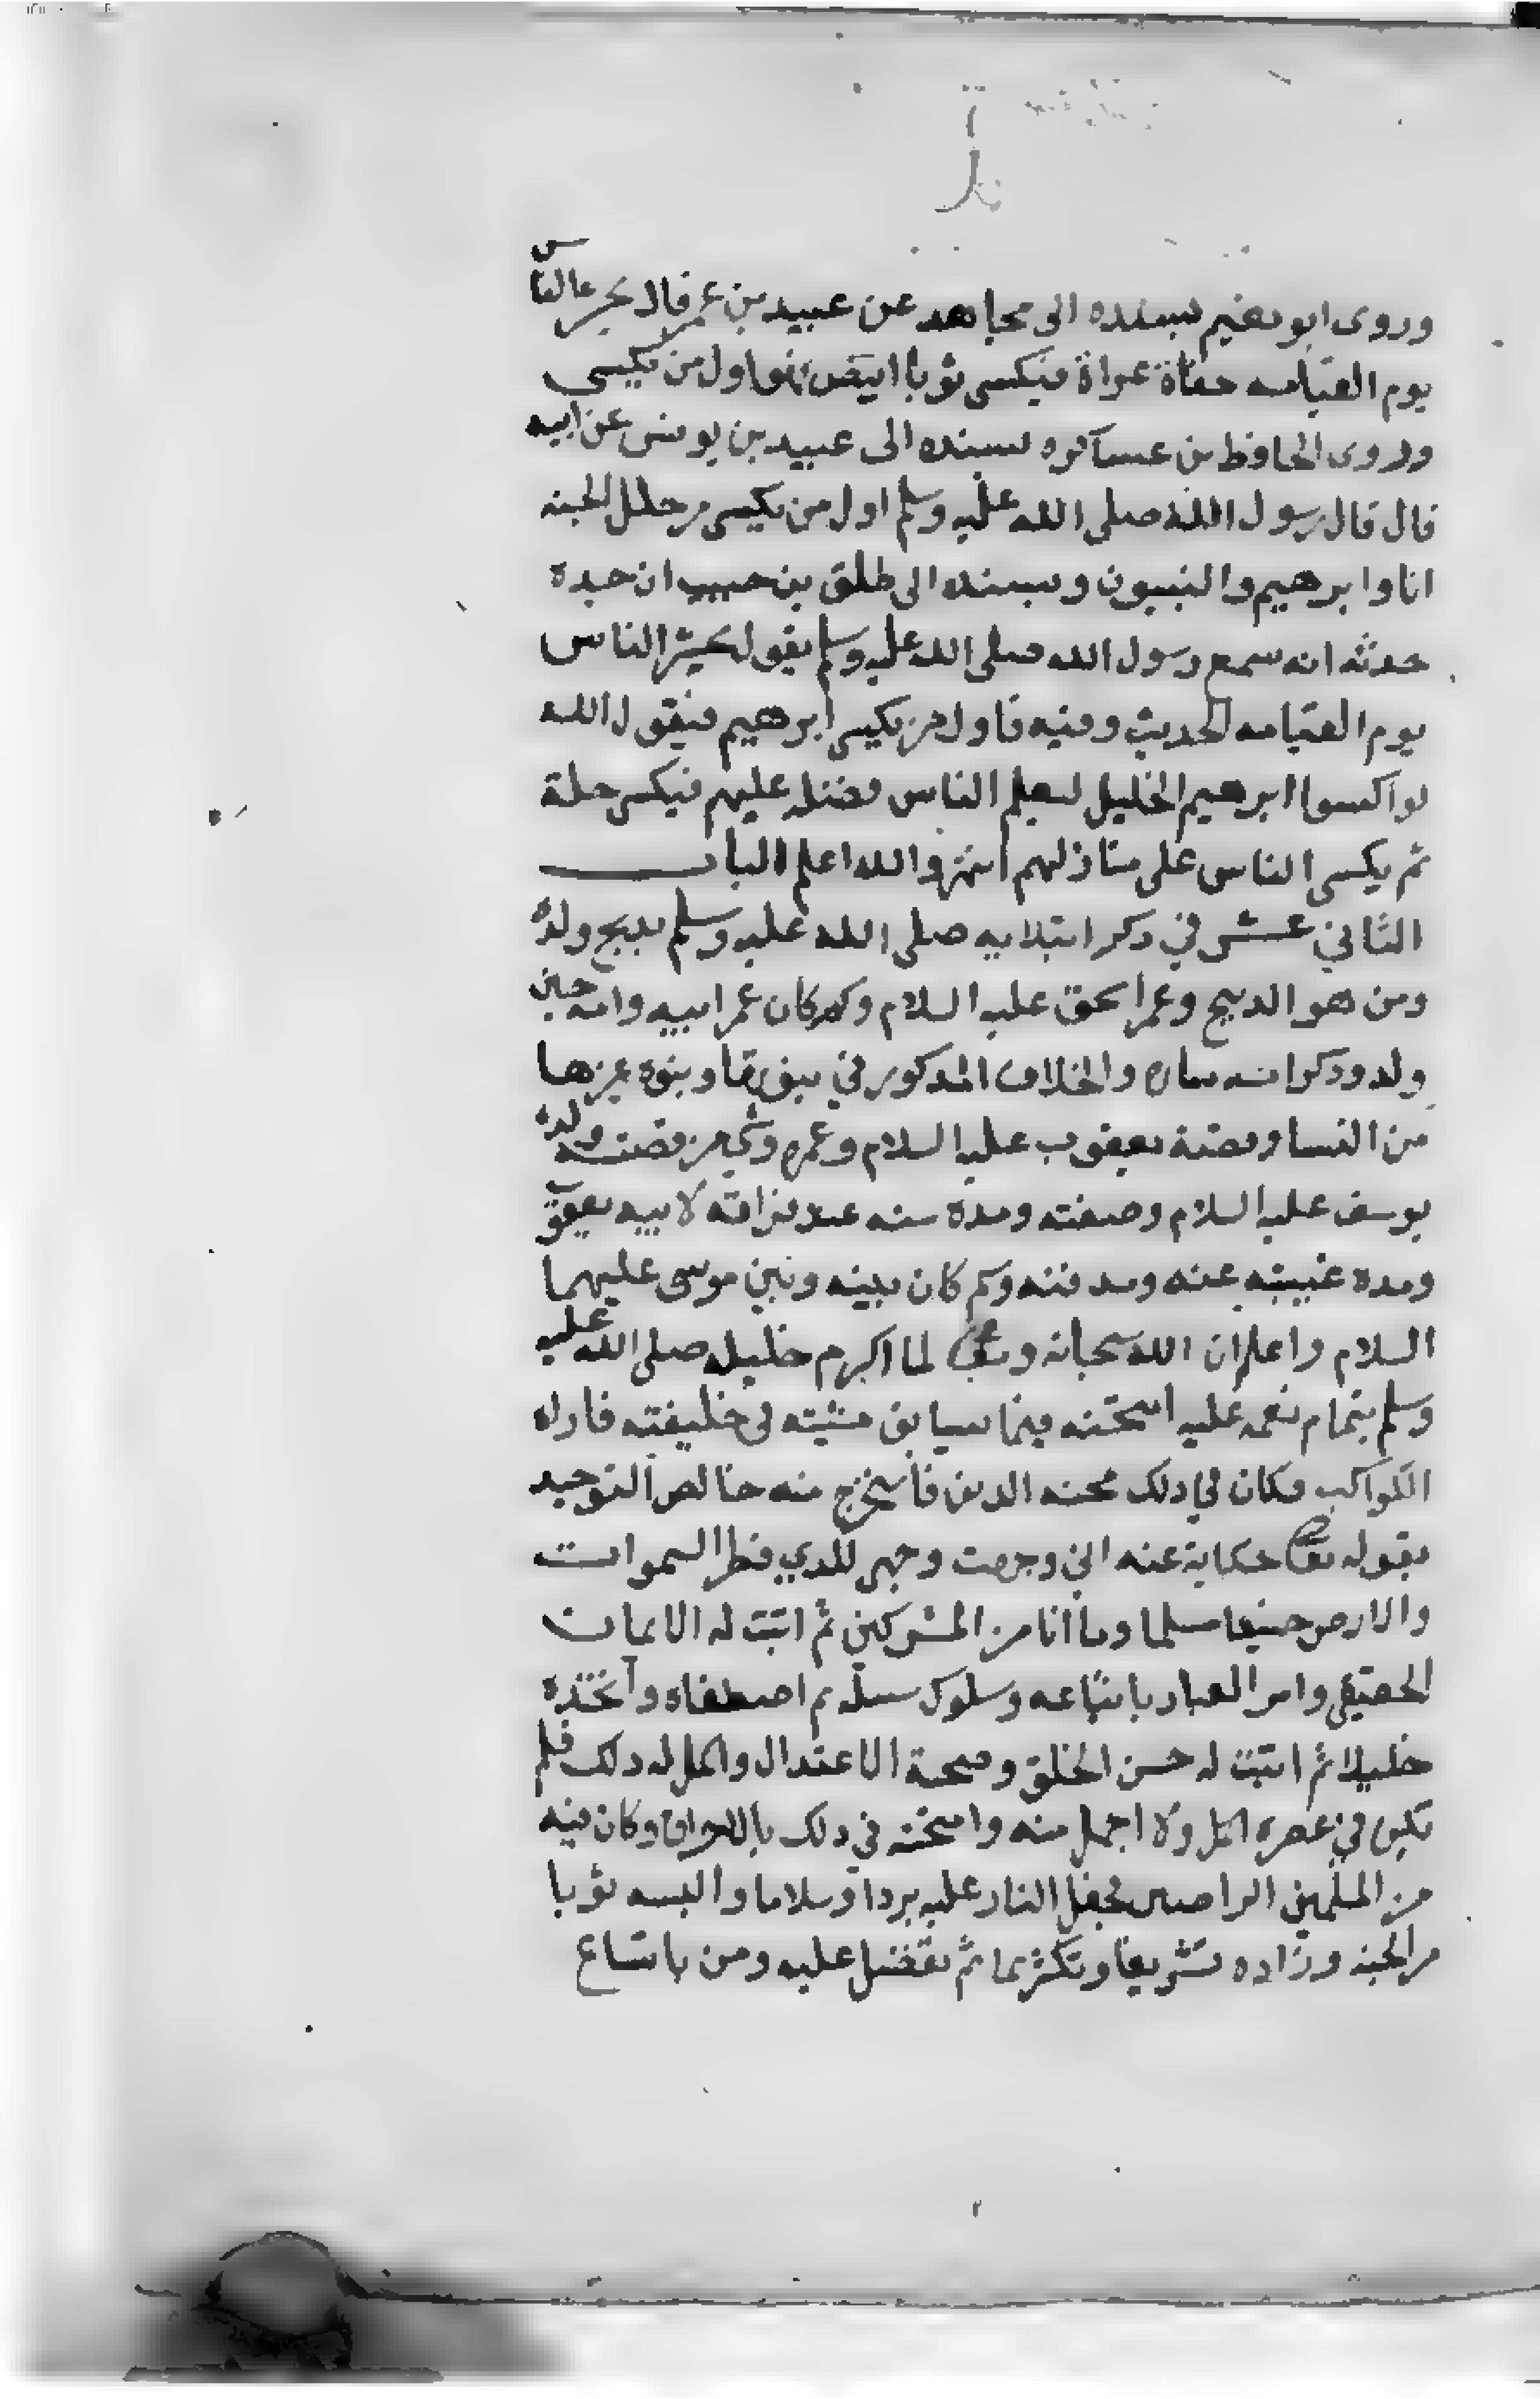 وروى ابو نعيم بسنده الى مجاهد عن عبيد بن عمر قال يحشر الناس
يوم القيامه حفاة عراة فيكسى ثوبا ابيض فهو اول من يكسى
وروى الحافظ بن عساكره بسنده الى عبيد بن يونس عن ابيه
قال قال رسول الله صلى الله عليه وسلم اول من يكسى من حلل الجنه
انا وابرهيم والنبيون وبسنده الى طلق بن حبيب ان حيده
حدثه انه سمع رسول الله صلى الله عليه وسلم يقول يحشر الناس
يوم القيامه الحديث وفيه فاول من يكسى ابرهيم فيقول الله
اكسوا ابرهيم الخليل ليعلم الناس فضله عليهم فيكسى حلة
ثم يكسى الناس على منازلهم انتهى والله اعلم الباب
الثاني عشر في ذكر ابتلايه صلى الله عليه وسلم بذبح ولده
ومن هو الذبيح وعمر اسحق عليه السلام وكم كان عمر ابيه وامه حين
ولد وذكر امه ساره والخلاف المذكور في نبوتها ونبوة غيرها
من النسا وقصة يعقوب عليه السلام وعمره وشي من قصة ولده
يوسف عليه السلام وصفته ومدة سنه عند فراقه لابيه يعقوب
ومده غيبته عنه ومدفنه وكم كان بينه وبين موسى عليهما
السلام واعلم ان الله سبحانه وتعالى لما اكرم خليله صلى الله عليه
وسلم بتمام نعمه عليه امتحنه فيما سابق مشيته في خليقته فاراه
الكواكب فكان في ذلك محنه الدين فاستخرج منه خالص التوحيد
بقوله تعالى حكاية عنه اني وجهت وجهي للذي فطر السموات
والارض حنيفا مسلما وما انا من المشركين ثم اثبت له الايمان
الحقيقي وامر العباد باتباعه وسلوك سبيله ثم اصطفاه واتخذه
خليلا ثم اثبت له حسن الخلق وصحة الاعتدال واكمل له ذلك فلم
يكن في عصره اكمل ولا اجمل منه وامتحنه في ذلك بالاحراق وكان فيه
من المسلمين الراضين فجعل النار عليه بردا وسلاما والبسه ثوبا
من الجنه وزاده تشريفا وتكريما ثم تفضل عليه ومن باتساع